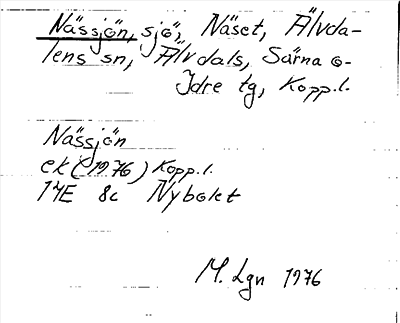 Nässjön, sjö i Näset, Älvda-
lens sn, Älvdals, Särna o
Idre tg, Kopp.l.
Nässjön
ek (1976) Kopp.l.
14E 8c Nybolet
M. Lgn 1976